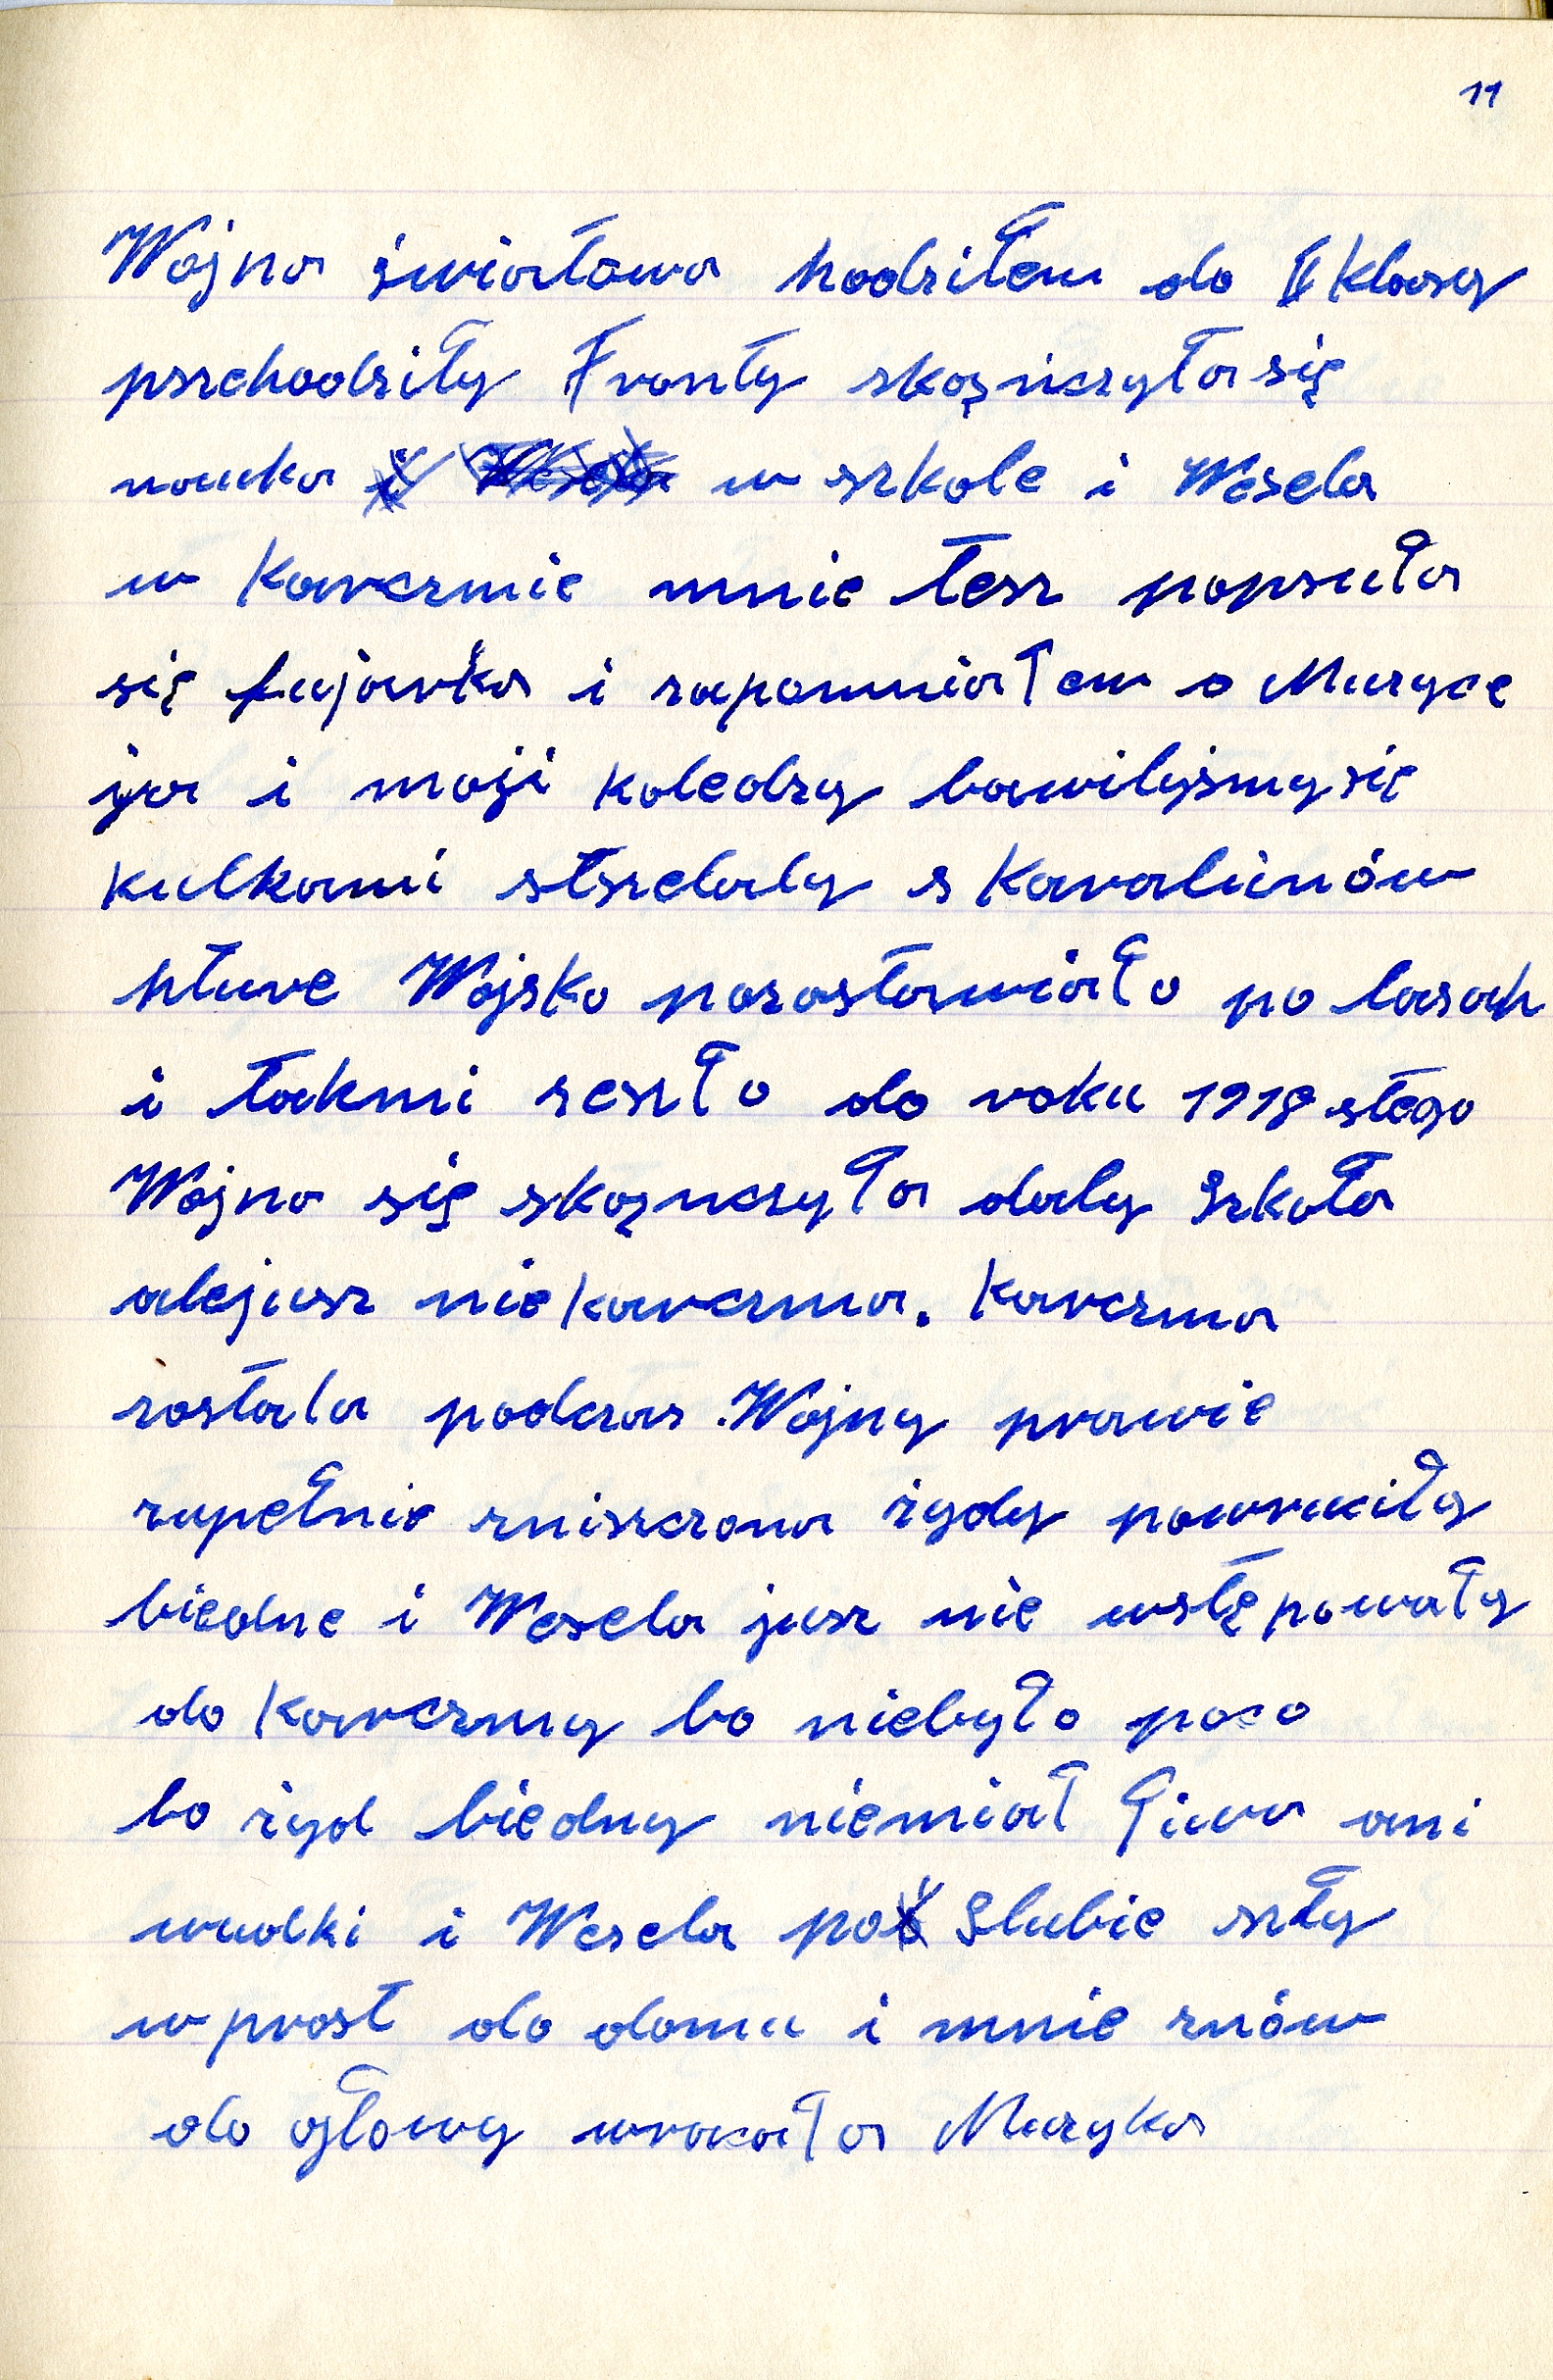 11
Wojna światowa hodziłem do II Klasy
pszehodziły Fronty skojnczyła się
nauka w szkole i Wesela
w Karczmie mnie tesz popsuła
się fujarka i zapomniałem o Muzyce
ja i moji koledzy bawilyjsmy się
kulkami stszelaly s Karabinów
hture Wojsko pozostawiało po lasah
i takmi zeszło do roku 1918 stego
Wojna się skojnczyła daly Szkoła
alejusz nie karczma. Karczma
zostala podczas Wojny prawie
zupełnie zniszczona żydy powruciły
biedne i Wesela jusz nie wstępowały
do Karczmy bo niebyło poco
bo żyd biedny niemiał Piwa ani
wudki i Wesela po Slubie szły
w prost do domu i mnie znów
do głowy wracała Muzyka